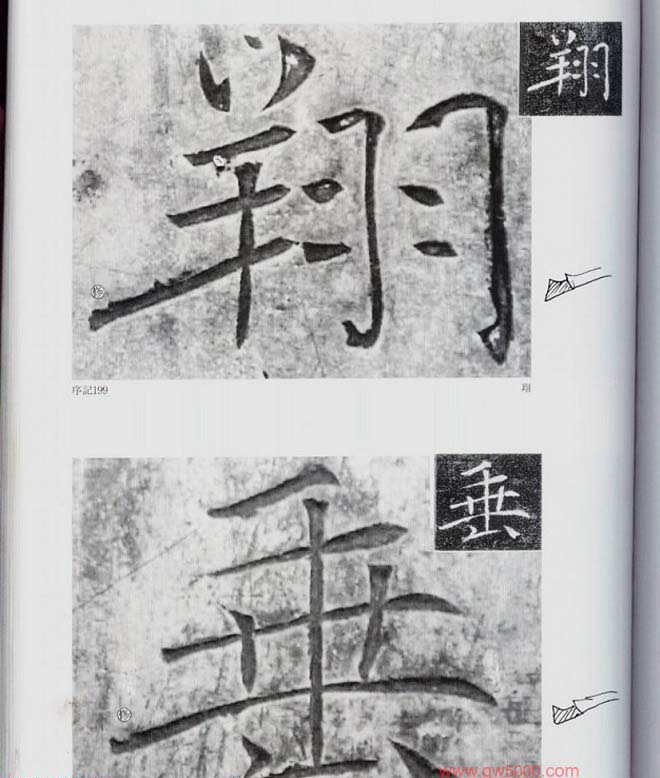 翔
翔
序記199
翔
垂
垂
www.qw5000.com